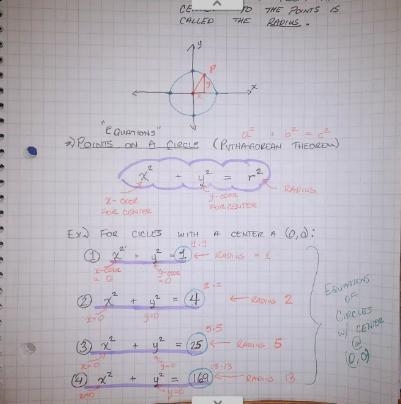 TO THE POINTS IS
CALLED THE RADIUS.
y
P
y
x
x
"EQUATIONS"
a² + b² = c²
*) POINTS ON A CIRCLE (PYTHAGOREAN THEOREM)
x² + y² = r²
RADIUS
X-COOR
FOR CENTER
y-COOR
FOR CENTER
Ex.) FOR CICLES WITH A CENTER A (0,0):
① x² + y² = 1 1·1 ← RADIUS = 1
X-COOR
= 0
y-COOR
=0
② x² + y² = 4 2·2 ← RADIUS 2
x=0 y=0
③ x² + y² = 25 5·5 ← RADIUS 5
x=0 y=0
④ x² + y² = 169 13·13 ← RADIUS 13
x=0 y=0
EQUATIONS
OF
CIRCLES
W/ CENTER
@
(0,0)